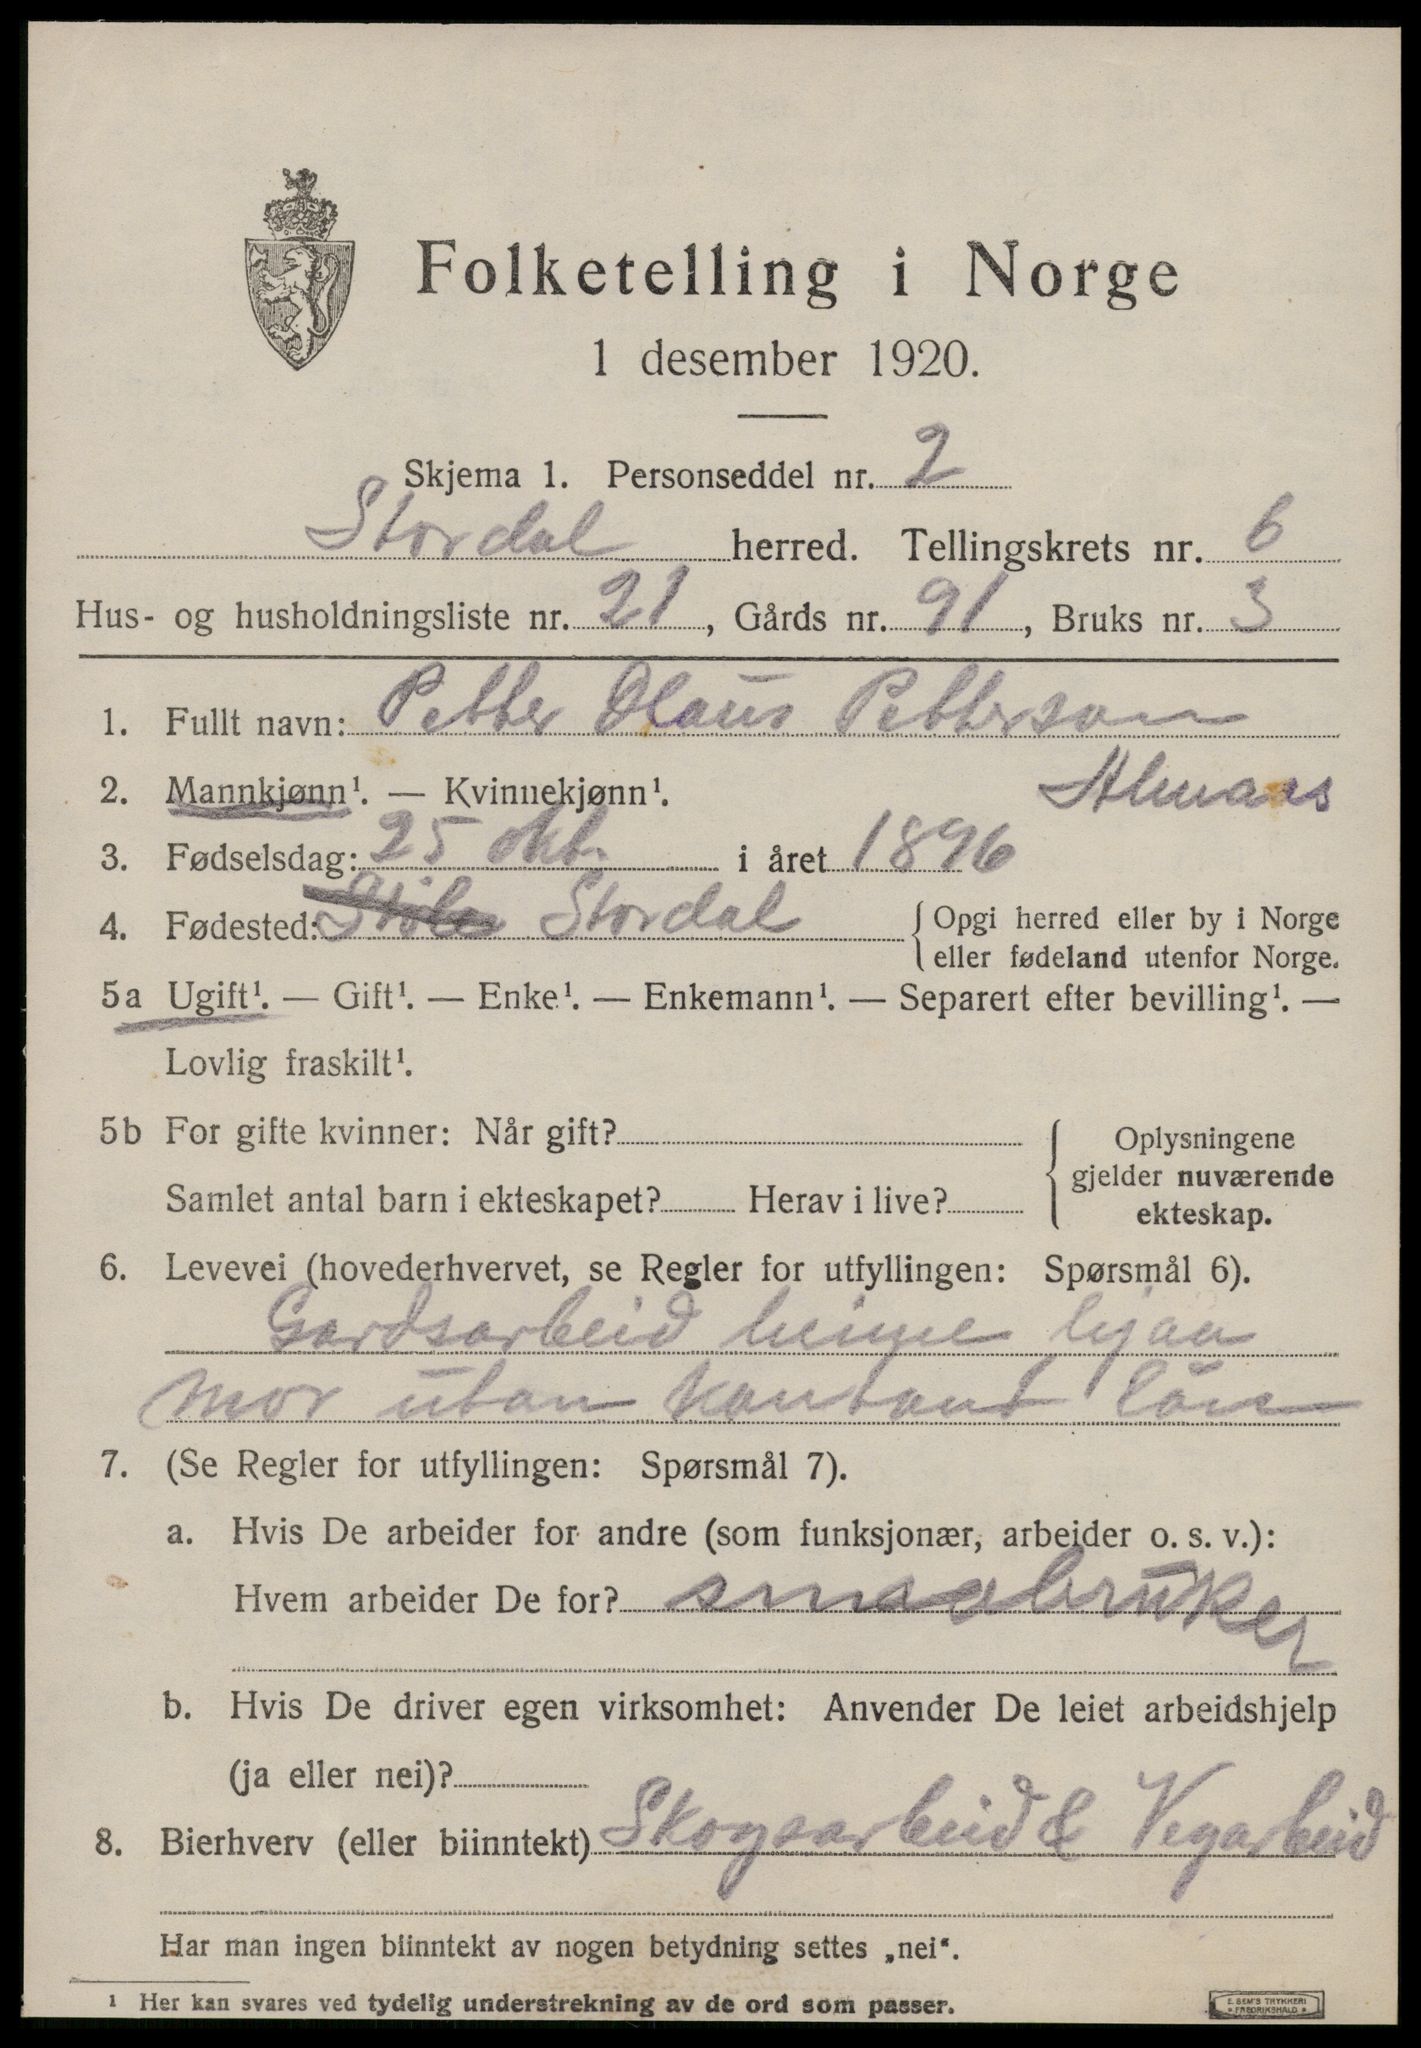 Folketelling i Norge
1 desember 1920.
Skjema 1. Personseddel nr. 2
Stordal herred. Tellingskrets nr. 6
Hus- og husholdningsliste nr. 21, Gårds nr. 91, Bruks nr. 3
1. Fullt navn: Petter Olaus Petterson
Almaas
2. Mannkjønn¹. — Kvinnekjønn¹.
3. Fødselsdag: 25 okt. i året 1896
4. Fødested: Stordal { Opgi herred eller by i Norge
eller fødeland utenfor Norge.
5a Ugift¹. — Gift¹. — Enke¹. — Enkemann¹. — Separert efter bevilling¹. —
Lovlig fraskilt¹.
5b For gifte kvinner: Når gift? { Oplysningene
gjelder nuværende
Samlet antal barn i ekteskapet? Herav i live? ekteskap.
6. Levevei (hovederhvervet, se Regler for utfyllingen: Spørsmål 6).
Gardsarbeid heime hjaa
mor utan kontant løn
7. (Se Regler for utfyllingen: Spørsmål 7).
a. Hvis De arbeider for andre (som funksjonær, arbeider o. s. v.):
Hvem arbeider De for? smaabruker
b. Hvis De driver egen virksomhet: Anvender De leiet arbeidshjelp
(ja eller nei)?
8. Bierhverv (eller biinntekt) Skogsarbeid & Vegarbeid
Har man ingen biinntekt av nogen betydning settes „nei“.
¹ Her kan svares ved tydelig understrekning av de ord som passer.
E. SEM'S TRYKKERI
FREDRIKSHALD